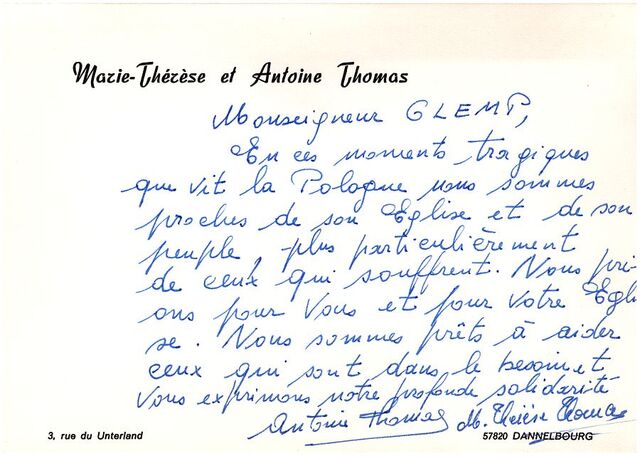 Marie-Thérèse et Antoine Thomas
Monseigneur GLEMP,
En ces moments tragiques
que vit la Pologne nous sommes
proches de son Eglise et de son
peuple, plus particulièrement
de ceux qui souffrent. Nous pri-
ons pour Vous et pour Votre Egli
se. Nous sommes prêts à aider
ceux qui sont dans le besoin et
Vous exprimons notre profonde solidarité
Antoine Thomas M. Thérèse Thomas
3, rue du Unterland 57820 DANNELBOURG